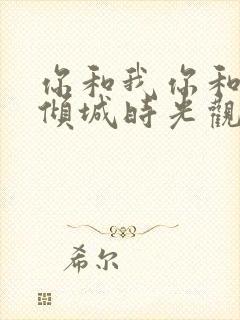 你和我 你和
倾城时光觀
希尔